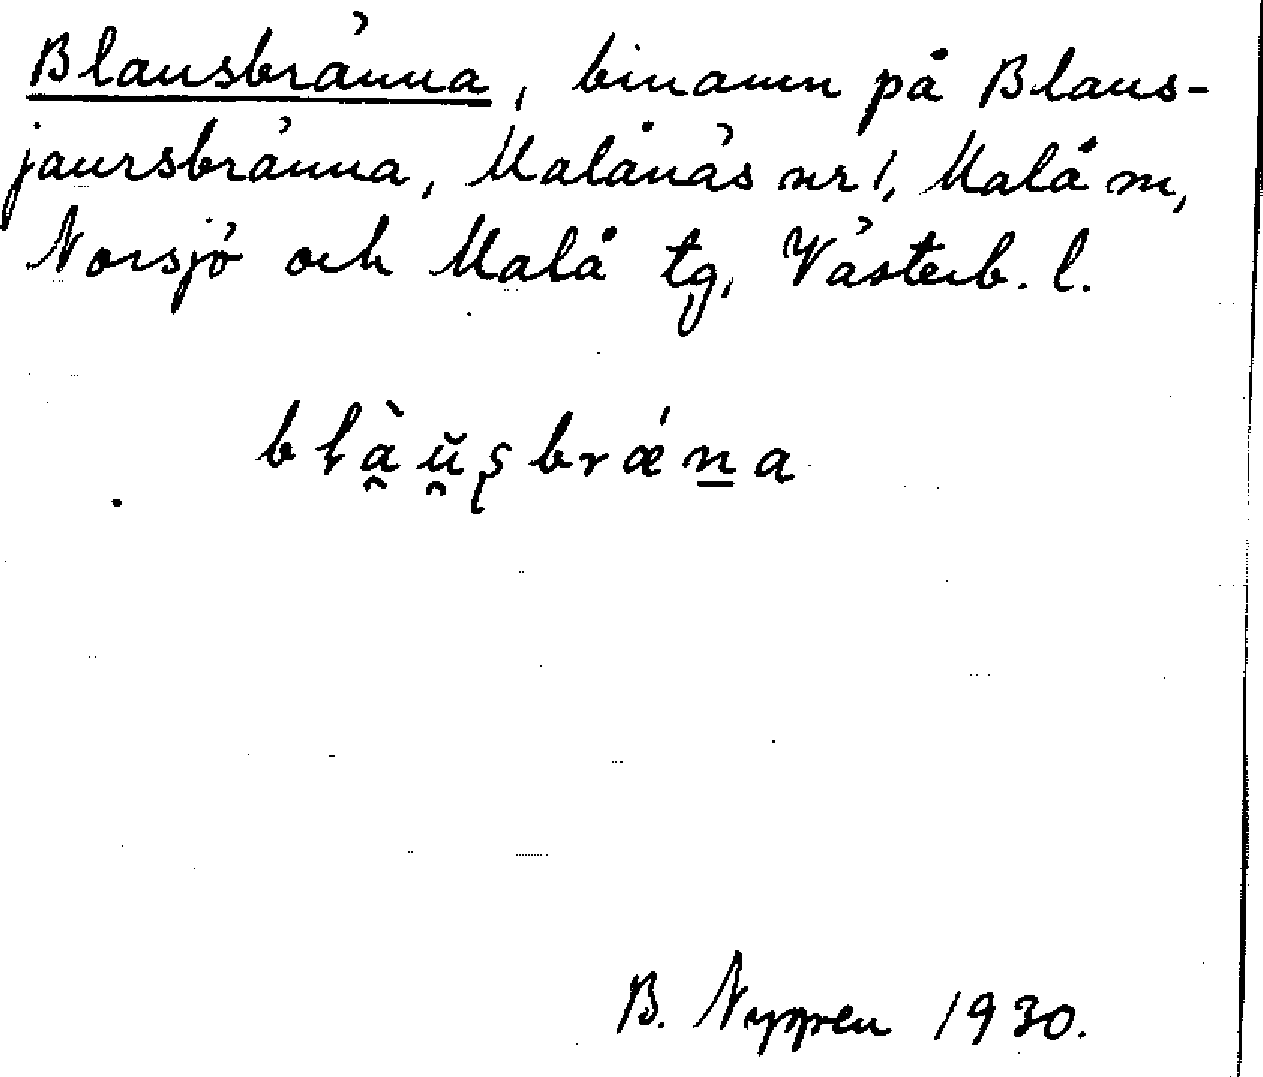 Blausbränna, binamn på Blaus-
jaursbränna, Malånäs nr 1, Malå sn,
Norsjö och Malå tg, Västerb. l.
blàŭsbrǽna
B. Nygren 1930.